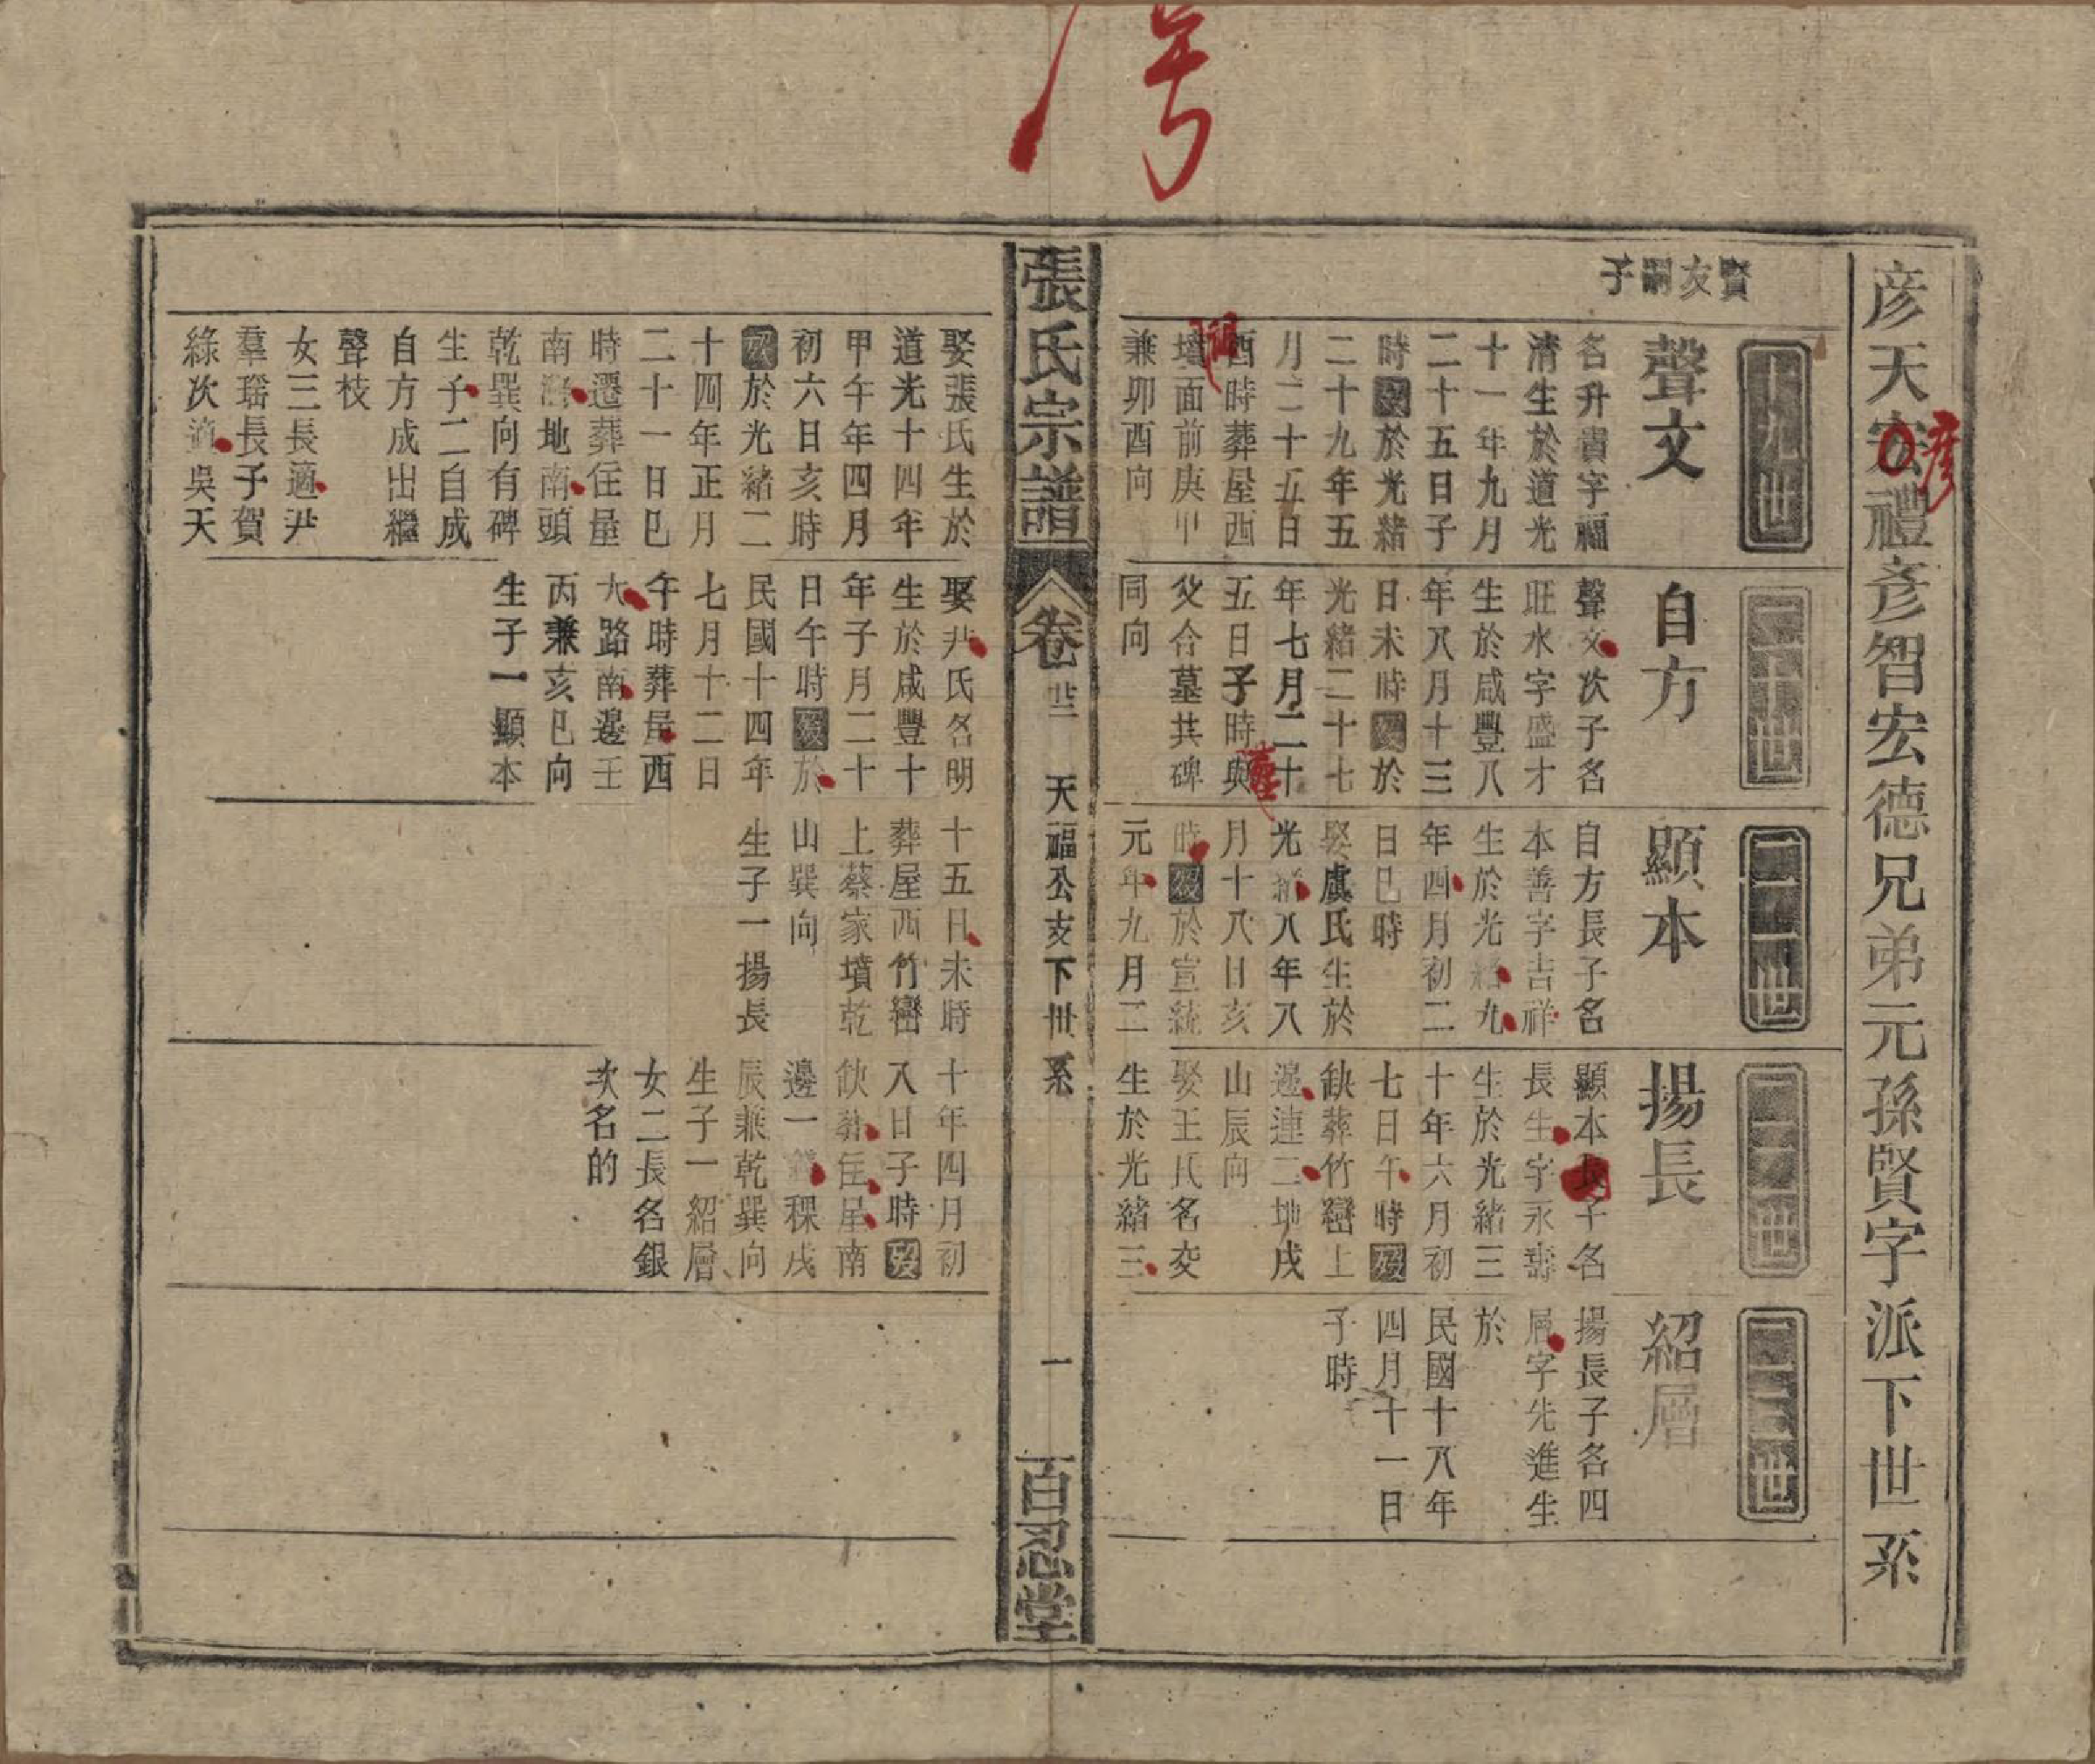 彦天宏禮彦智宏德兄弟元孫賢字派下世系
彦
賢友嗣子
十九世
聲文
名升貴字福
清生於道光
十一年九月
二十五日子
時歿於光緒
二十九年五
月二十五日
酉時葬屋西
墳面前庚甲
兼卯酉向
娶張氏生於
道光十四年
甲午年四月
初六日亥時
歿於光緒二
十四年正月
二十一日巳
時遷葬住屋
南 地南頭
乾巽向有碑
生子二自成
自方成出繼
聲枝
女三長適尹
羣瑶長子賀
綠次適吳天
二十世
自方
聲文次子名
旺水字盛才
生於咸豐八
年八月十三
日未時歿於
光緒二十七
年七月二十
五日子時與
父合墓共碑
同向
娶尹氏名明
生於咸豐十
年子月二十
日午時歿於
民國十四年
七月十二日
午時葬屋西
大路南邊壬
丙兼亥巳向
生子一顯本
二十一世
顯本
自方長子名
本善字吉祥
生於光緒九
年四月初二
日巳時
娶虞氏生於
光緒八年八
月十八日亥
時歿於宣統
元年九月二
十五日未時
葬屋西竹巒
上蔡家墳乾
山巽向
生子一揚長
二十二世
揚長
顯本長子名
長生字永壽
生於光緒三
十年六月初
七日午時歿
缺葬竹巒上
邊連二地戌
山辰向
娶王氏名交
生於光緒三
十年四月初
八日子時歿
缺葬住屋南
邊一 稞戌
辰兼乾巽向
生子一紹層
女二長名銀
次名的
二十三世
紹層
揚長子名四
層字先進生
於
民國十八年
四月十一日
子時
張氏宗譜
卷廿二
天福公支下世系
一
百忍堂